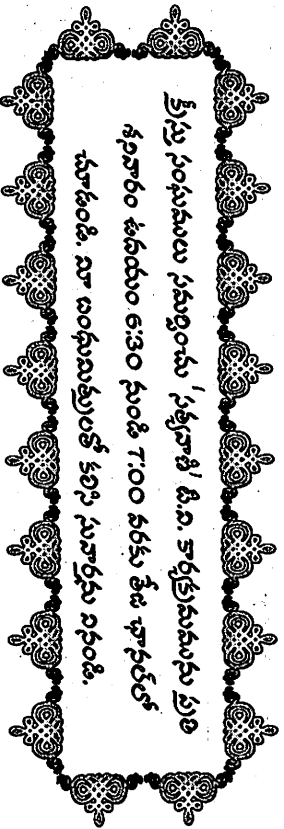 క్రీస్తు సంఘములు సమర్పించు 'సత్యవాణి' టి.వి. కార్యక్రమమును ప్రతి
శనివారం ఉదయం 6:30 నుండి 7:00 వరకు తేజ ఛానల్‌లో
చూడండి. మా బంధుమిత్రులతో కలిసి సువార్తను వినండి.